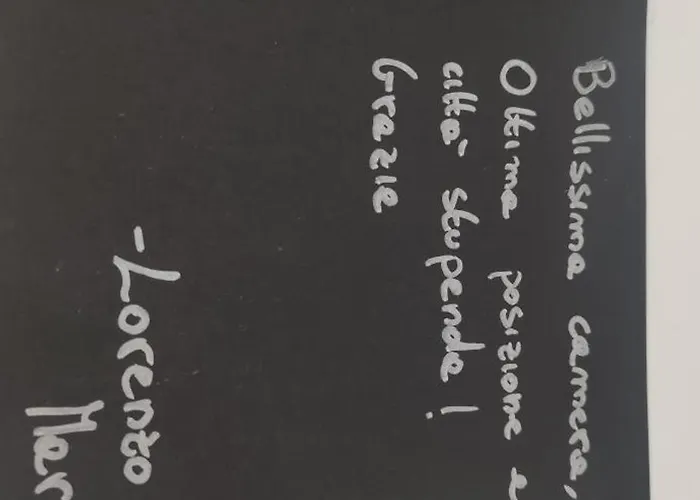 Bellissima camera,
Ottima posizione e
città stupenda!
Grazie
-Lorenzo